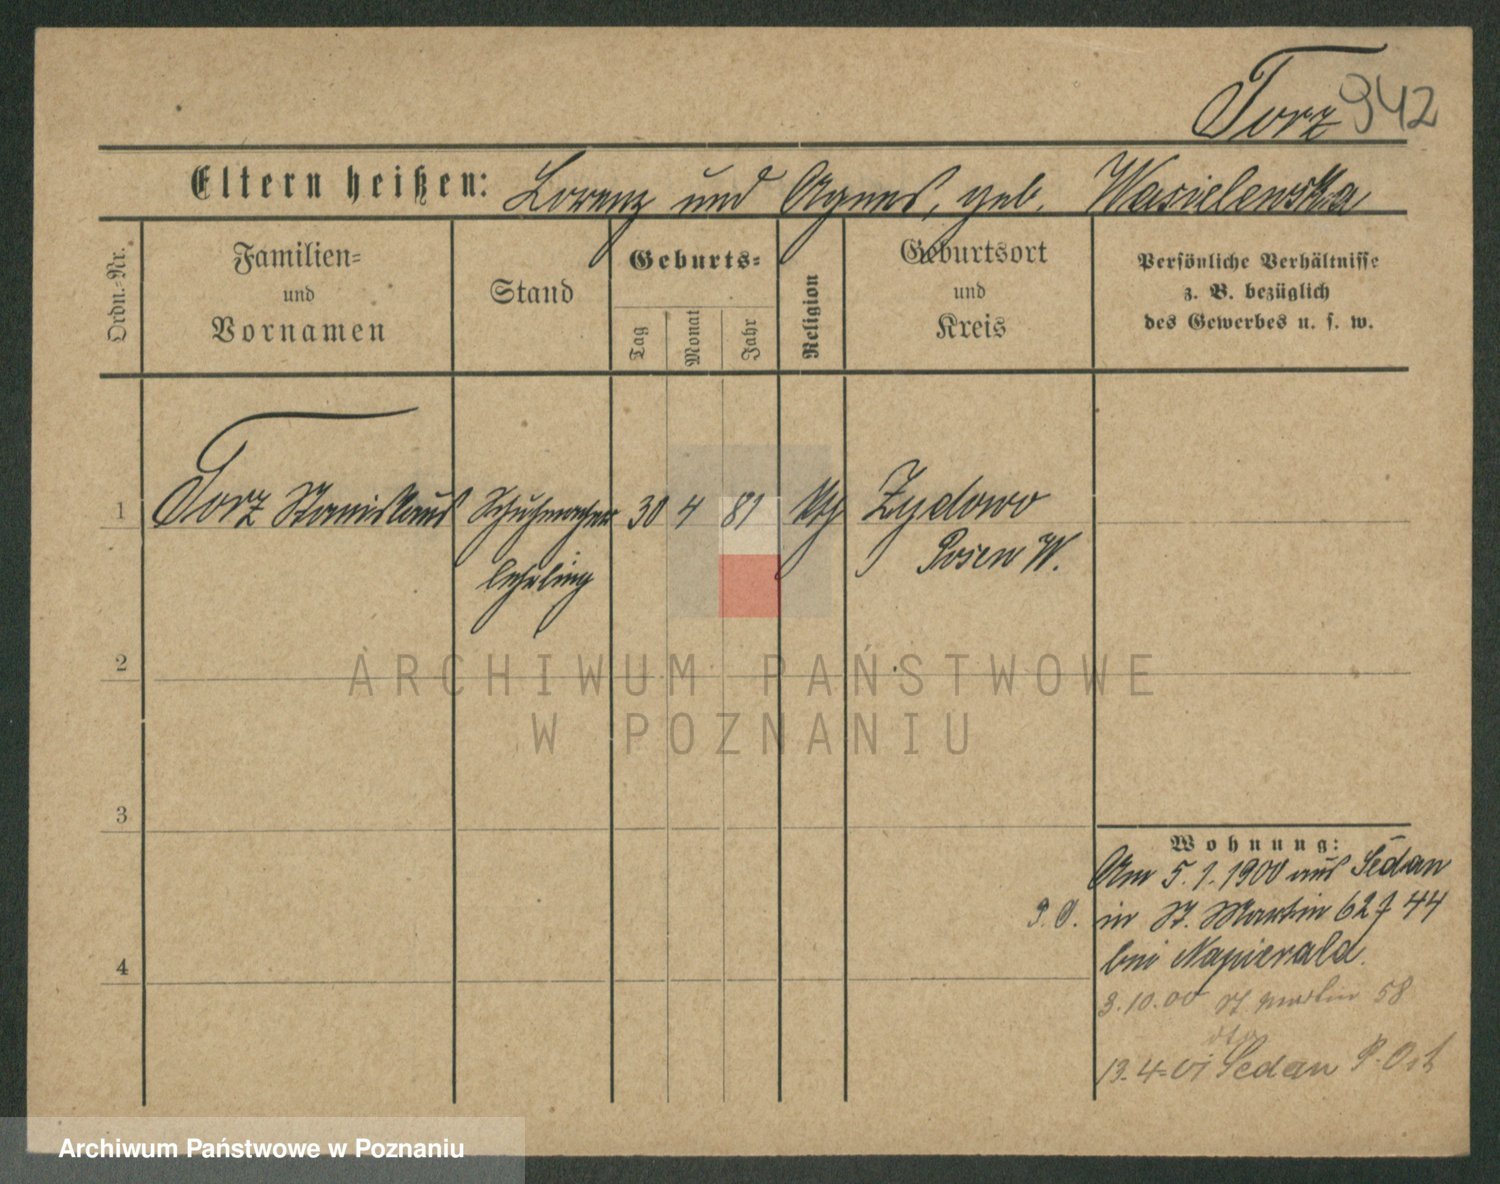 Torz 942
Eltern heißen: Lorenz und Agnes, geb. Wasielewska
Ordn.-Nr.
Familien-
und
Vornamen
Stand
Geburts-
Tag
Monat
Jahr
Religion
Geburtsort
und
Kreis
Persönliche Verhältnisse
z. B. bezüglich
des Gewerbes u. s. w.
1 Torz Stanislaus Schuhmacher 30 4 81 kth Zydowo
lehrling Posen W.
2
ARCHIWUM PAŃSTWOWE
W POZNANIU
3
Wohnung:
Am 5.1.1900 aus Sedan
P. O. in St. Martin 62 44
bei Napierala.
4
3.10.00 St. Martin 58
13.4.01 Sedan P. Ost
Archiwum Państwowe w Poznaniu